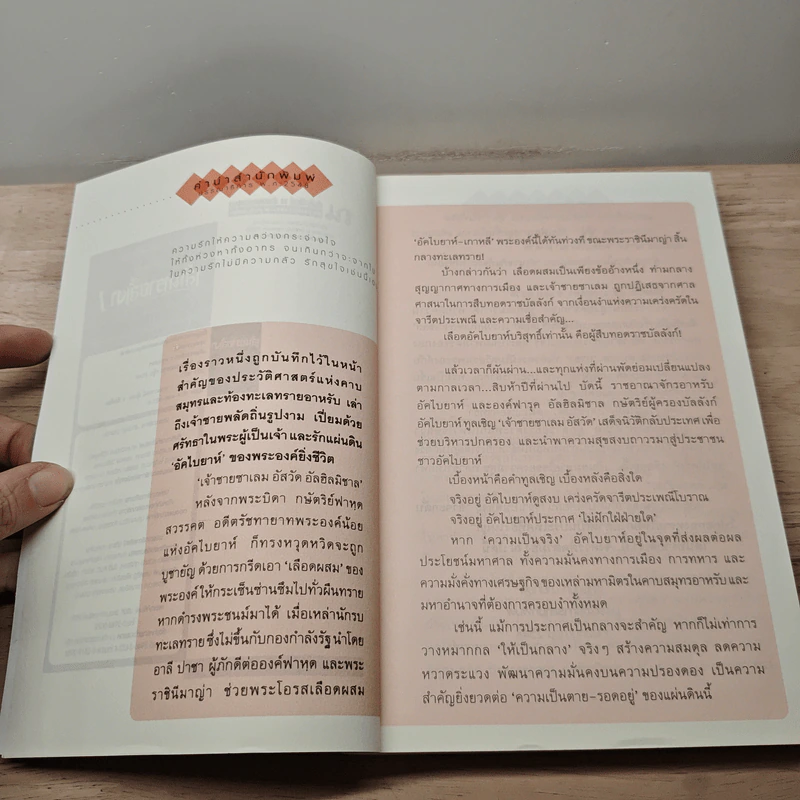 คำนำสำนักพิมพ์
ความรักให้ความสว่างกระจ่างใจ
ให้ทั้งห่วงหาทั้งอาทร จนเกินกว่าจะจากไ
ในความรักไม่มีความกลัว รักสุขใจเช่นนี้เ
เรื่องราวหนึ่งถูกบันทึกไว้ในหน้า
สำคัญของประวัติศาสตร์แห่งคาบ
สมุทรและท้องทะเลทรายอาหรับ เล่า
ถึงเจ้าชายพลัดถิ่นรูปงาม เปี่ยมด้วย
ศรัทธาในพระผู้เป็นเจ้า และรักแผ่นดิน
'อัคไบยาห์' ของพระองค์ยิ่งชีวิต
'เจ้าชายซาเลม อัสวัด อัลฮิลมิซาล'
หลังจากพระบิดา กษัตริย์ฟาหฺด
สวรรคต อดีตรัชทายาทพระองค์น้อย
แห่งอัคไบยาห์ ก็ทรงหวุดหวิดจะถูก
บูชายัญ ด้วยการกรีดเอา 'เลือดผสม' ของ
พระองค์ให้กระเซ็นซ่านซึมไปทั่วผืนทราย
หากดำรงพระชนม์มาได้ เมื่อเหล่านักรบ
ทะเลทราย ซึ่งไม่ขึ้นกับกองกำลังรัฐ นำโดย
อาลี ปาชา ผู้ภักดีต่อองค์ฟาหฺด และพระ
ราชินีมาญ่า ช่วยพระโอรสเลือดผสม
'อัคไบยาห์-เกาหลี' พระองค์นี้ได้ทันท่วงที ขณะพระราชินีมาญ่า สิ้น
กลางทะเลทราย!
บ้างกล่าวกันว่า เลือดผสมเป็นเพียงข้ออ้างหนึ่ง ท่ามกลาง
สุญญากาศทางการเมือง และเจ้าชายซาเลม ถูกปฏิเสธจากศาล
ศาสนาในการสืบทอดราชบัลลังก์ จากเงื่อนงำแห่งความเคร่งครัดใน
จารีตประเพณี และความเชื่อสำคัญ...
เลือดอัคไบยาห์บริสุทธิ์เท่านั้น คือผู้สืบทอดราชบัลลังก์!
แล้วเวลาก็ผันผ่าน...และทุกแห่งที่ผ่านพัดย่อมเปลี่ยนแปลง
ตามกาลเวลา...สิบห้าปีที่ผ่านไป บัดนี้ ราชอาณาจักรอาหรับ
อัคไบยาห์ และองค์ฟารุค อัลฮิลมิซาล กษัตริย์ผู้ครองบัลลังก์
อัคไบยาห์ ทูลเชิญ 'เจ้าชายซาเลม อัสวัด' เสด็จนิวัติกลับประเทศ เพื่อ
ช่วยบริหารปกครอง และนำพาความสุขสงบถาวรมาสู่ประชาชน
ชาวอัคไบยาห์
เบื้องหน้าคือคำทูลเชิญ เบื้องหลังคือสิ่งใด
จริงอยู่ อัคไบยาห์ดูสงบ เคร่งครัดจารีตประเพณีโบราณ
จริงอยู่ อัคไบยาห์ประกาศ 'ไม่ฝักใฝ่ฝ่ายใด'
หาก 'ความเป็นจริง' อัคไบยาห์อยู่ในจุดที่ส่งผลต่อผล
ประโยชน์มหาศาล ทั้งความมั่นคงทางการเมือง การทหาร และ
ความมั่งคั่งทางเศรษฐกิจของเหล่ามหามิตรในคาบสมุทรอาหรับ และ
มหาอำนาจที่ต้องการครอบงำทั้งหมด
เช่นนี้ แม้การประกาศเป็นกลางจะสำคัญ หากก็ไม่เท่าการ
วางหมากกล 'ให้เป็นกลาง' จริงๆ สร้างความสมดุล ลดความ
หวาดระแวง พัฒนาความมั่นคงบนความปรองดอง เป็นความ
สำคัญยิ่งยวดต่อ 'ความเป็นตาย-รอดอยู่' ของแผ่นดินนี้